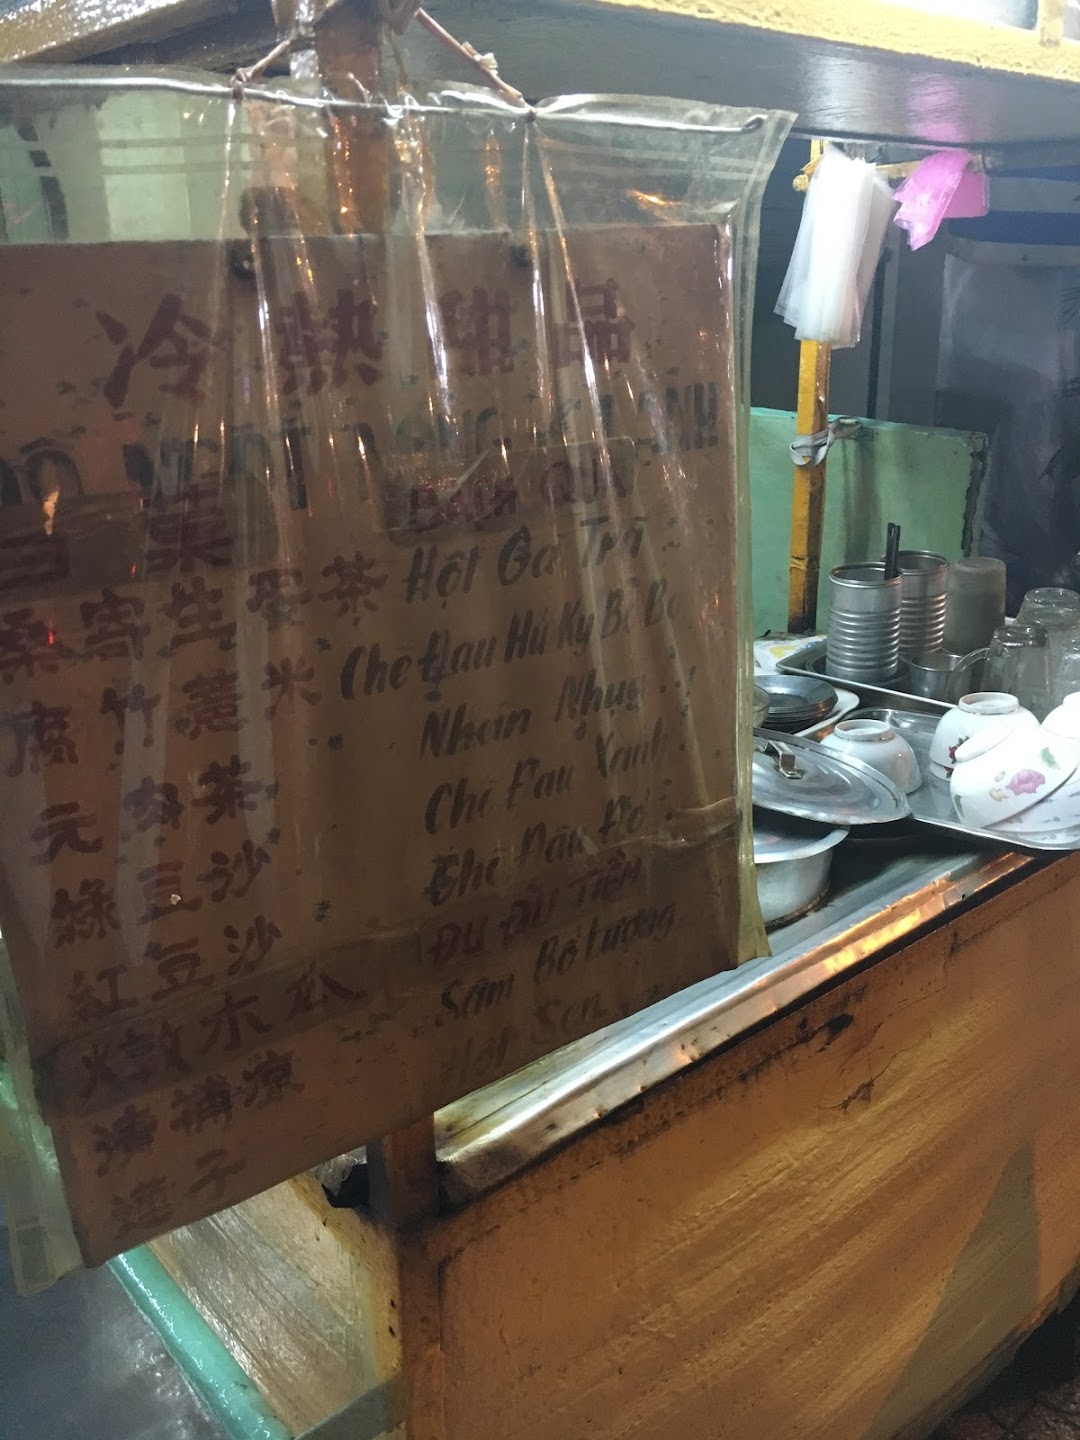 冷熱甜品
BÁNH QUY
桑寄生蛋茶 Hột Gà Trà
腐竹薏米 Chè Đậu Hủ Ky Bo Bo
元肉茶 Nhãn Nhục
綠豆沙 Chè Đậu Xanh
紅豆沙 Chè Đậu Đỏ
燉木瓜 ĐU ĐỦ TIỀM
清補涼 Sâm Bổ Lượng
蓮子 Hột Sen